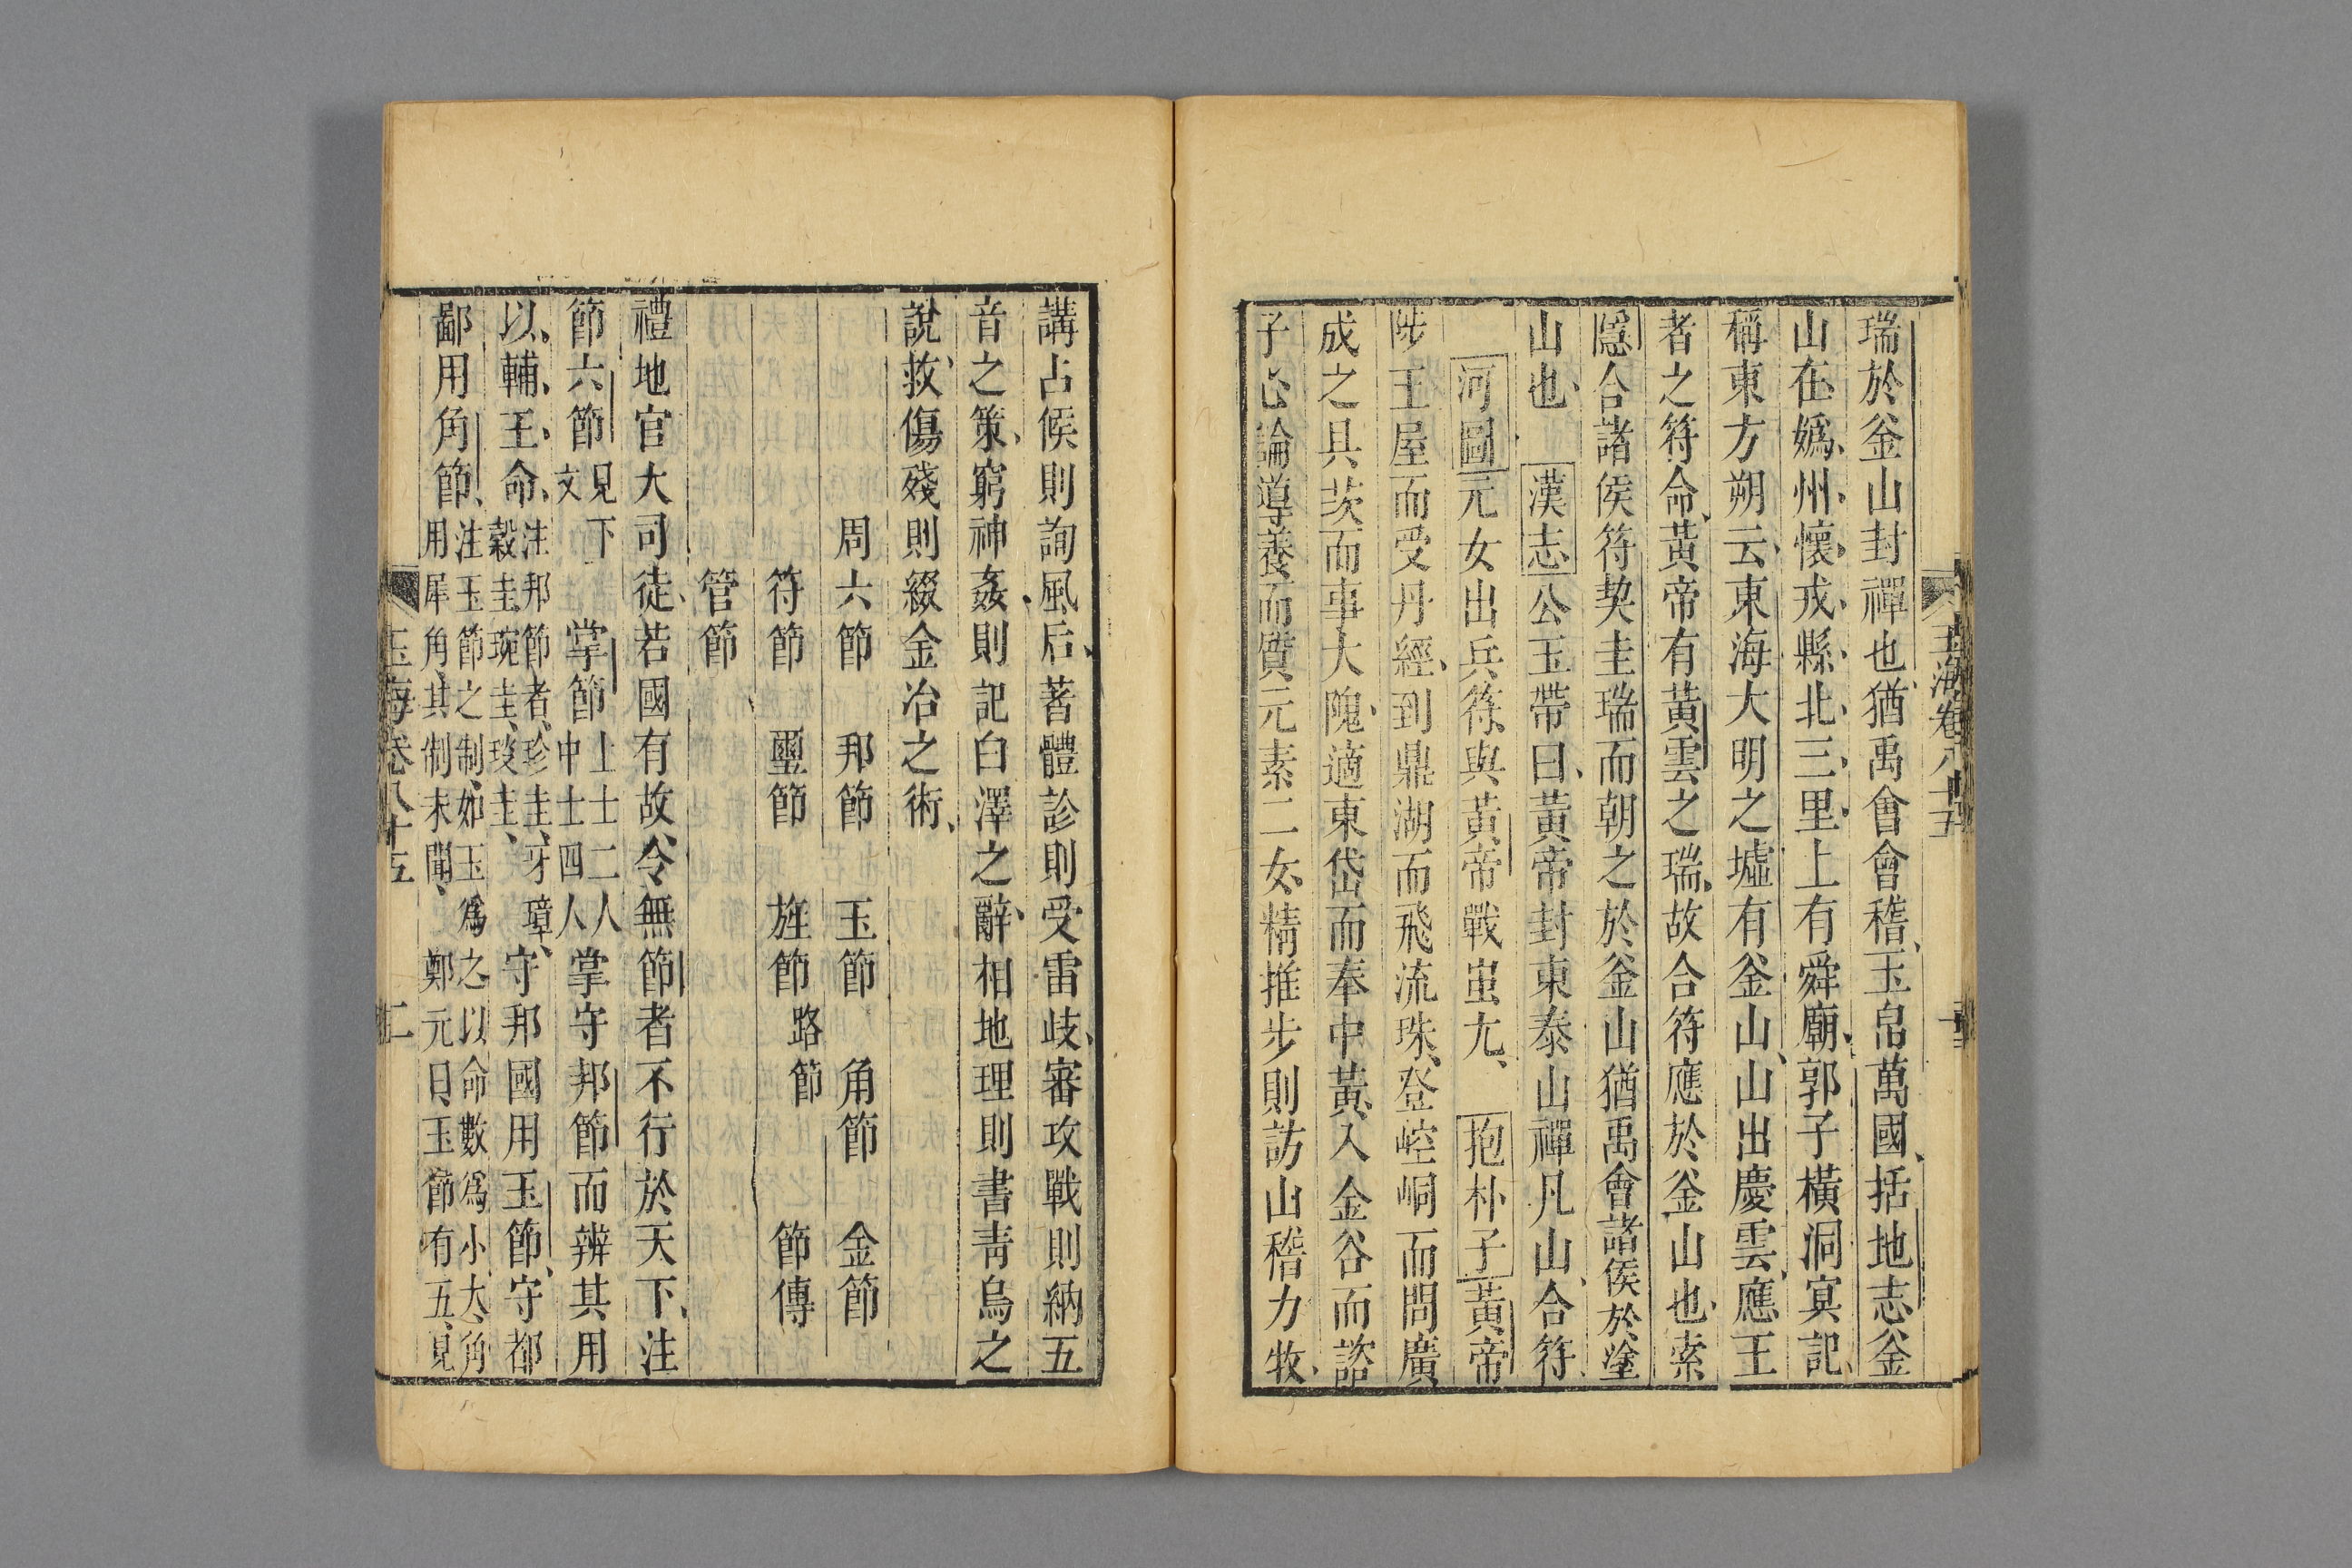 玉海卷八十五
瑞於釜山封禪也猶禹會會稽玉帛萬國括地志釜
山在嬀州懷戎縣北三里上有舜廟郭子橫洞冥記
稱東方朔云東海大明之墟有釜山山出慶雲應王
者之符命黃帝有黃雲之瑞故合符應於釜山也索
隱合諸侯符契圭瑞而朝之於釜山猶禹會諸侯於塗
山也 漢志公玉帶曰黃帝封東泰山禪凡山合符
河圖元女出兵符與黃帝戰蚩尤 抱朴子黃帝
陟王屋而受丹經到鼎湖而飛流珠登崆峒而問廣
成之具茨而事大隗適東岱而奉中黃入金谷而諮
子心論導養而質元素二女精推步則訪山稽力牧
講占候則詢風后著體診則受雷岐審攻戰則納五
音之策窮神姦則記白澤之辭相地理則書青烏之
說救傷殘則綴金冶之術
周六節 邦節 玉節 角節 金節
符節 璽節 旌節 路節 節傳
管節
禮地官大司徒若國有故令無節者不行於天下注
節六節見下文 掌節上士二人中士四人掌守邦節而辨其用
以輔王命注邦節者珍圭牙璋穀圭琬圭琰圭守邦國用玉節守都
鄙用角節注玉節之制如玉爲之以命數爲小大角用犀角其制未聞 鄭元曰玉節有五見
玉海卷八十五 二